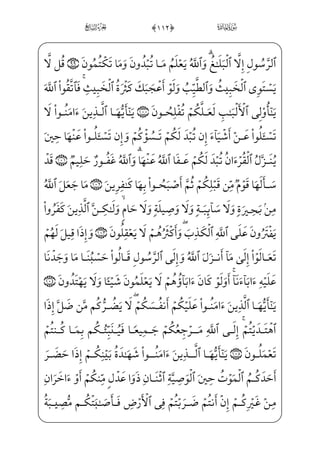 الجزء السابع ﴿١١٢﴾ سورة المائدة
ٱلرَّسُولِ إِلَّا ٱلْبَلَٰغُ ۗ وَٱللَّهُ يَعْلَمُ مَا تُبْدُونَ وَمَا تَكْتُمُونَ ۝٩٩ قُل لَّا
يَسْتَوِى ٱلْخَبِيثُ وَٱلطَّيِّبُ وَلَوْ أَعْجَبَكَ كَثْرَةُ ٱلْخَبِيثِ ۚ فَٱتَّقُوا۟ ٱللَّهَ
يَٰٓأُو۟لِى ٱلْأَلْبَٰبِ لَعَلَّكُمْ تُفْلِحُونَ ۝١٠٠ يَٰٓأَيُّهَا ٱلَّذِينَ ءَامَنُوا۟ لَا
تَسْـَٔلُوا۟ عَنْ أَشْيَآءَ إِن تُبْدَ لَكُمْ تَسُؤْكُمْ وَإِن تَسْـَٔلُوا۟ عَنْهَا حِينَ
يُنَزَّلُ ٱلْقُرْءَانُ تُبْدَ لَكُمْ عَفَا ٱللَّهُ عَنْهَا ۗ وَٱللَّهُ غَفُورٌ حَلِيمٌ ۝١٠١ قَدْ
سَأَلَهَا قَوْمٌ مِّن قَبْلِكُمْ ثُمَّ أَصْبَحُوا۟ بِهَا كَٰفِرِينَ ۝١٠٢ مَا جَعَلَ ٱللَّهُ
مِنۢ بَحِيرَةٍ وَلَا سَآئِبَةٍ وَلَا وَصِيلَةٍ وَلَا حَامٍ ۙ وَلَٰكِنَّ ٱلَّذِينَ كَفَرُوا۟
يَفْتَرُونَ عَلَى ٱللَّهِ ٱلْكَذِبَ ۖ وَأَكْثَرُهُمْ لَا يَعْقِلُونَ ۝١٠٣ وَإِذَا قِيلَ لَهُمْ
تَعَالَوْا۟ إِلَىٰ مَآ أَنزَلَ ٱللَّهُ وَإِلَى ٱلرَّسُولِ قَالُوا۟ حَسْبُنَا مَا وَجَدْنَا
عَلَيْهِ ءَابَآءَنَآ ۚ أَوَلَوْ كَانَ ءَابَآؤُهُمْ لَا يَعْلَمُونَ شَيْـًٔا وَلَا يَهْتَدُونَ ۝١٠٤
يَٰٓأَيُّهَا ٱلَّذِينَ ءَامَنُوا۟ عَلَيْكُمْ أَنفُسَكُمْ ۖ لَا يَضُرُّكُم مَّن ضَلَّ إِذَا
ٱهْتَدَيْتُمْ ۚ إِلَى ٱللَّهِ مَرْجِعُكُمْ جَمِيعًا فَيُنَبِّئُكُم بِمَا كُنتُمْ
تَعْمَلُونَ ۝١٠٥ يَٰٓأَيُّهَا ٱلَّذِينَ ءَامَنُوا۟ شَهَٰدَةُ بَيْنِكُمْ إِذَا حَضَرَ
أَحَدَكُمُ ٱلْمَوْتُ حِينَ ٱلْوَصِيَّةِ ٱثْنَانِ ذَوَا عَدْلٍ مِّنكُمْ أَوْ ءَاخَرَانِ
مِنْ غَيْرِكُمْ إِنْ أَنتُمْ ضَرَبْتُمْ فِى ٱلْأَرْضِ فَأَصَٰبَتْكُم مُّصِيبَةُ